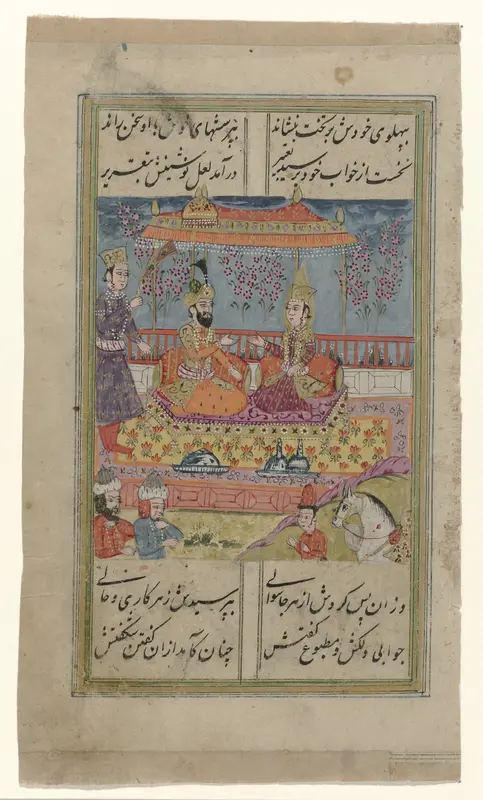 بپهلوی خودش بر تخت بنشاند بپرسشهای خوش با او سخن راند
نخست از خواب خود پرسید تعبیر درآمد لعل نوشینش بتقریر
وزان پس کردش از هر جا سوالی بپرسیدش زهر کاری و حالی
جوابی دلکش و مطبوع گفتش چنان کآمد ازان گفتن شگفتش